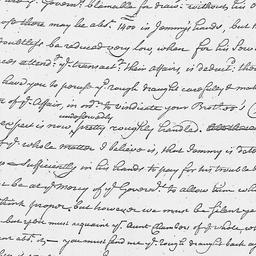 Govern.r blameable for draw.g without his o
so there may be abt. 1400 in Jemmy's hands, but t
doubtless be reduced very low, when for his Sow
ces attend.g ye transact.n their Affairs, is deduct.d: the
have you to peruse ye rough draught carefully & mak
of ye Affair, in ord.r to vindicate your Brother's
undeservedly
respect is now, pretty roughly handled.
of ye whole matter I believe is, that Jemmy is det
up a Sufficiency in his hands to pay for his trouble
be at ye Mercy of ye Govern.r to allow him wh
think proper, but however we must be silent ye
but you must acquaint yr. Aunt Chambers of ye whole, wh
abt. it,— you must send me ye rough draught back ag